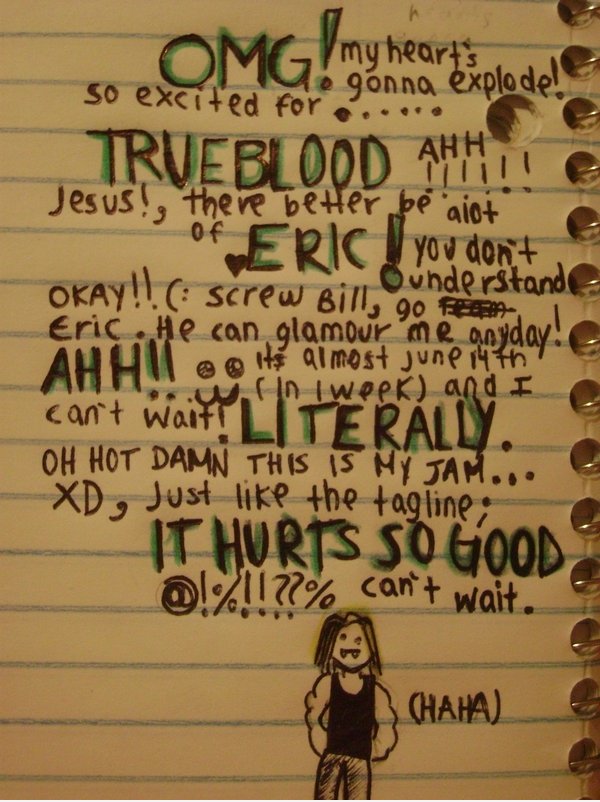 OMG! my heart's
gonna explode!
so excited for .......
TRUEBLOOD AHH
!!!!!!
Jesus!, there better be alot
of ♥ERIC! you don't
understand
OKAY!!(: screw Bill, go
Eric. He can glamour me anyday!
AHH!! its almost june 14th
(in 1 week) and I
can't wait! LITERALLY.
OH HOT DAMN THIS IS MY JAM...
XD, Just like the tagline;
IT HURTS SO GOOD
@!%!!??% can't wait.
(HAHA)